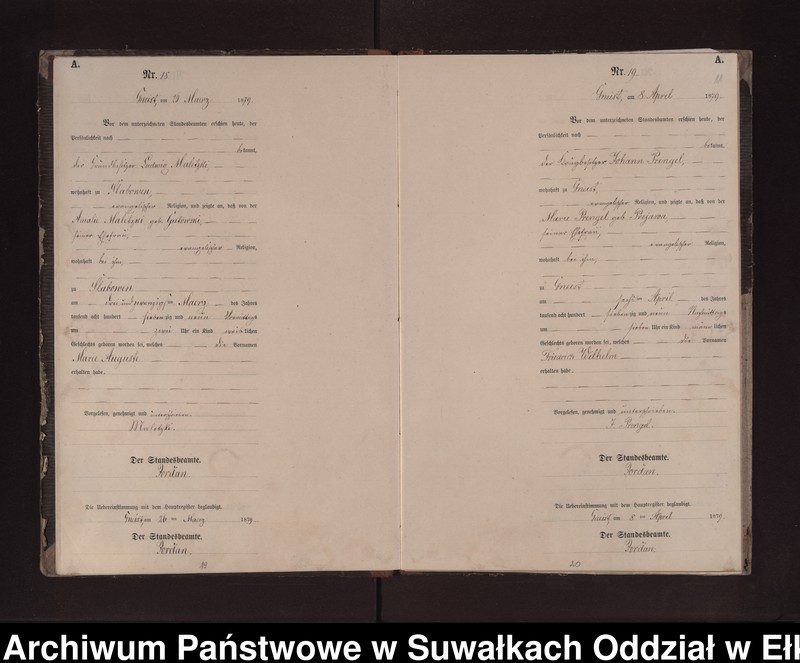 A.
Nr. 18.
Gneist, am 26 Maerz 1879.
Vor dem unterzeichneten Standesbeamten erschien heute, der
Persönlichkeit nach
bekannt,
der Grundbesitzer Ludwig Malitzki,
wohnhaft zu Slabowen,
evangelischer Religion, und zeigte an, daß von der
Amalie Malitzki geb. Gutowski,
seiner Ehefrau,
evangelischer Religion,
wohnhaft bei ihm,
zu Slabowen
am drei und zwanzigsten Maerz des Jahres
tausend acht hundert siebenzig und neun Vormittags
um zwei Uhr ein Kind weiblichen
Geschlechts geboren worden sei, welches die Vornamen
Marie Auguste
erhalten habe.
Vorgelesen, genehmigt und unterschrieben.
Malitzki.
Der Standesbeamte.
Jordan.
Die Uebereinstimmung mit dem Hauptregister beglaubigt.
Gneist, am 26 ten Maerz 1879.
Der Standesbeamte.
Jordan.
A.
Nr. 19.
Gneist, am 8. April 1879.
Vor dem unterzeichneten Standesbeamten erschien heute, der
Persönlichkeit nach
bekannt,
der Johann Poengel,
wohnhaft zu Gneist,
evangelischer Religion, und zeigte an, daß von der
Marie Poengel geb.
seiner Ehefrau,
evangelischer Religion,
wohnhaft bei ihm,
zu Gneist
am sechsten April des Jahres
tausend acht hundert siebenzig und neun Nachmittags
um sieben Uhr ein Kind männlichen
Geschlechts geboren worden sei, welches die Vornamen
Friedrich Wilhelm
erhalten habe.
Vorgelesen, genehmigt und unterschrieben.
J. Poengel.
Der Standesbeamte.
Jordan.
Die Uebereinstimmung mit dem Hauptregister beglaubigt.
Gneist, am 8 ten April 1879.
Der Standesbeamte.
Jordan.
20
Archiwum Państwowe w Suwałkach Oddział w Ełk